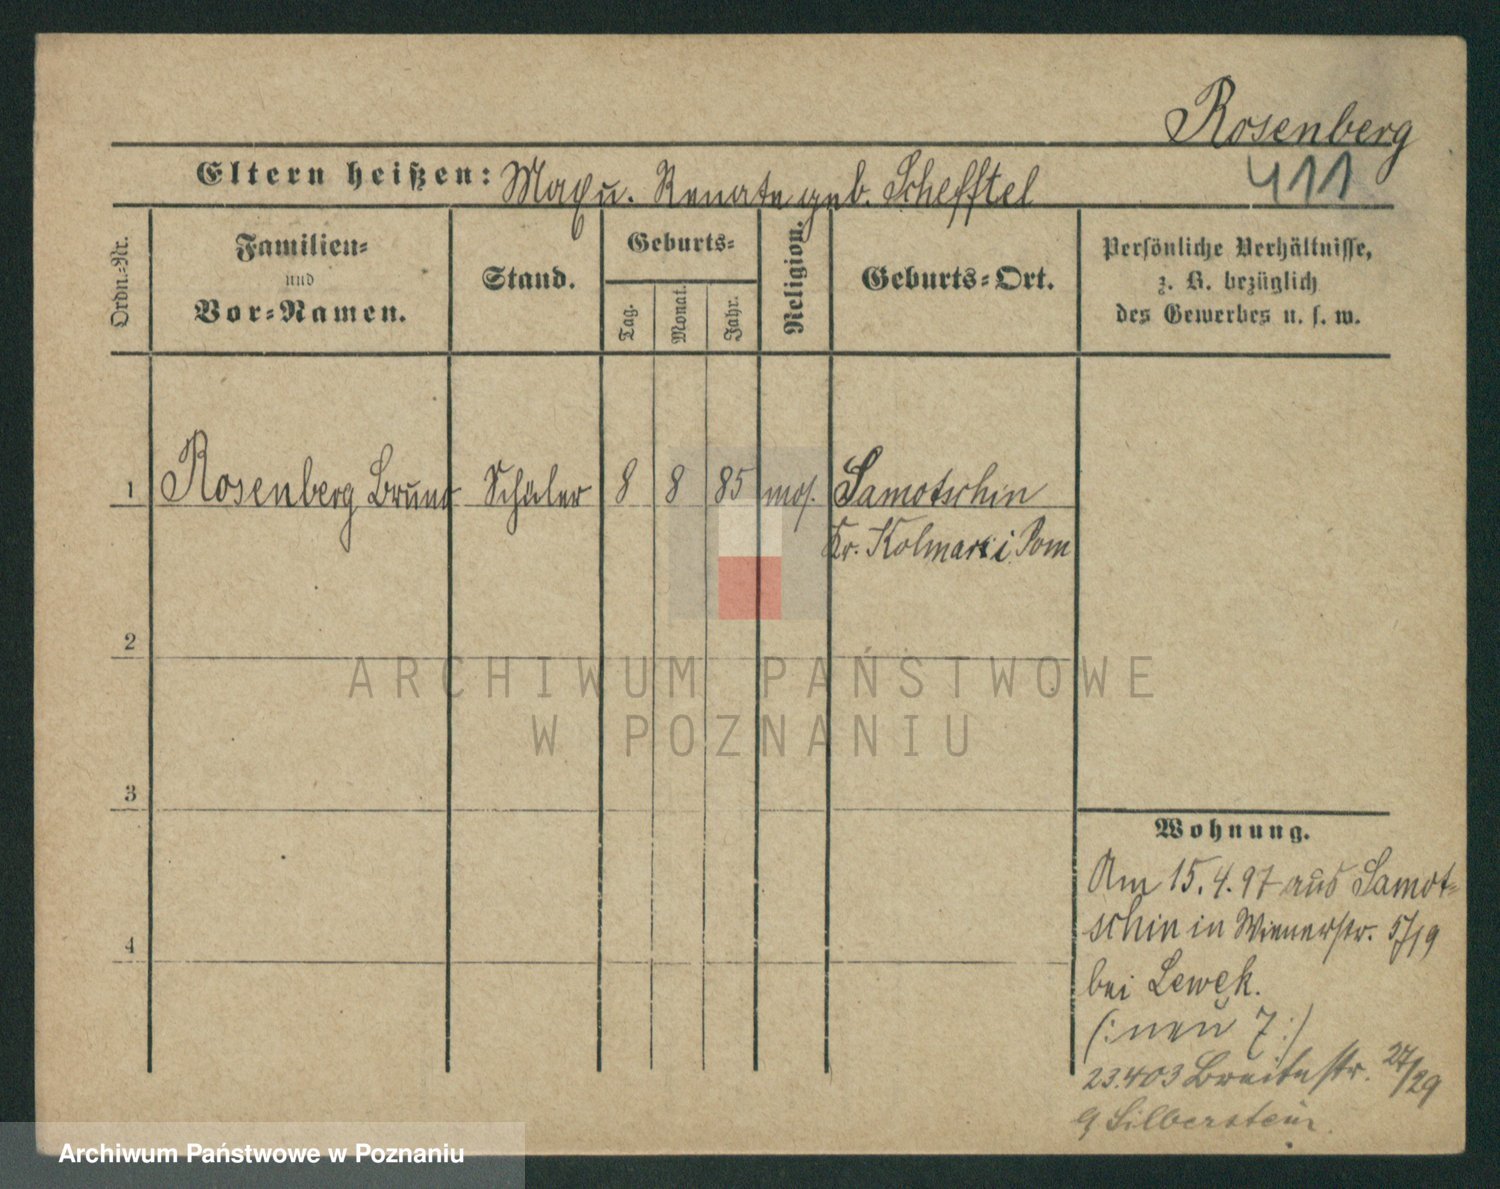 Rosenberg
411
Eltern heißen: Max u. Renate geb. Schefftel
Ordn.-Nr.
Familien-
und
Vor-Namen.
Stand.
Geburts-
Tag.
Monat.
Jahr.
Religion.
Geburts-Ort.
Persönliche Verhältnisse,
z. B. bezüglich
des Gewerbes u. s. w.
1 Rosenberg Bruno Schüler 8 8 85 mos. Samotschin
Kr. Kolmar i Pom
2
3
4
Wohnung.
Am 15.4.97 aus Samot-
schin in Wienerstr. 5/19
bei Lewek.
(: neu 7 :)
23.403 Breitestr. 27/29
Silberstein.
ARCHIWUM PAŃSTWOWE
W POZNANIU
Archiwum Państwowe w Poznaniu